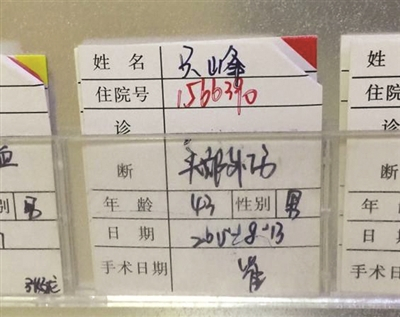 姓名 吴峰
住院号 1566390
诊
断 头部外伤
年龄 43 性别 男
日期 2015.8.13
手术日期 崔
别 男
姓
住院
诊
断
年龄
日期
手术日